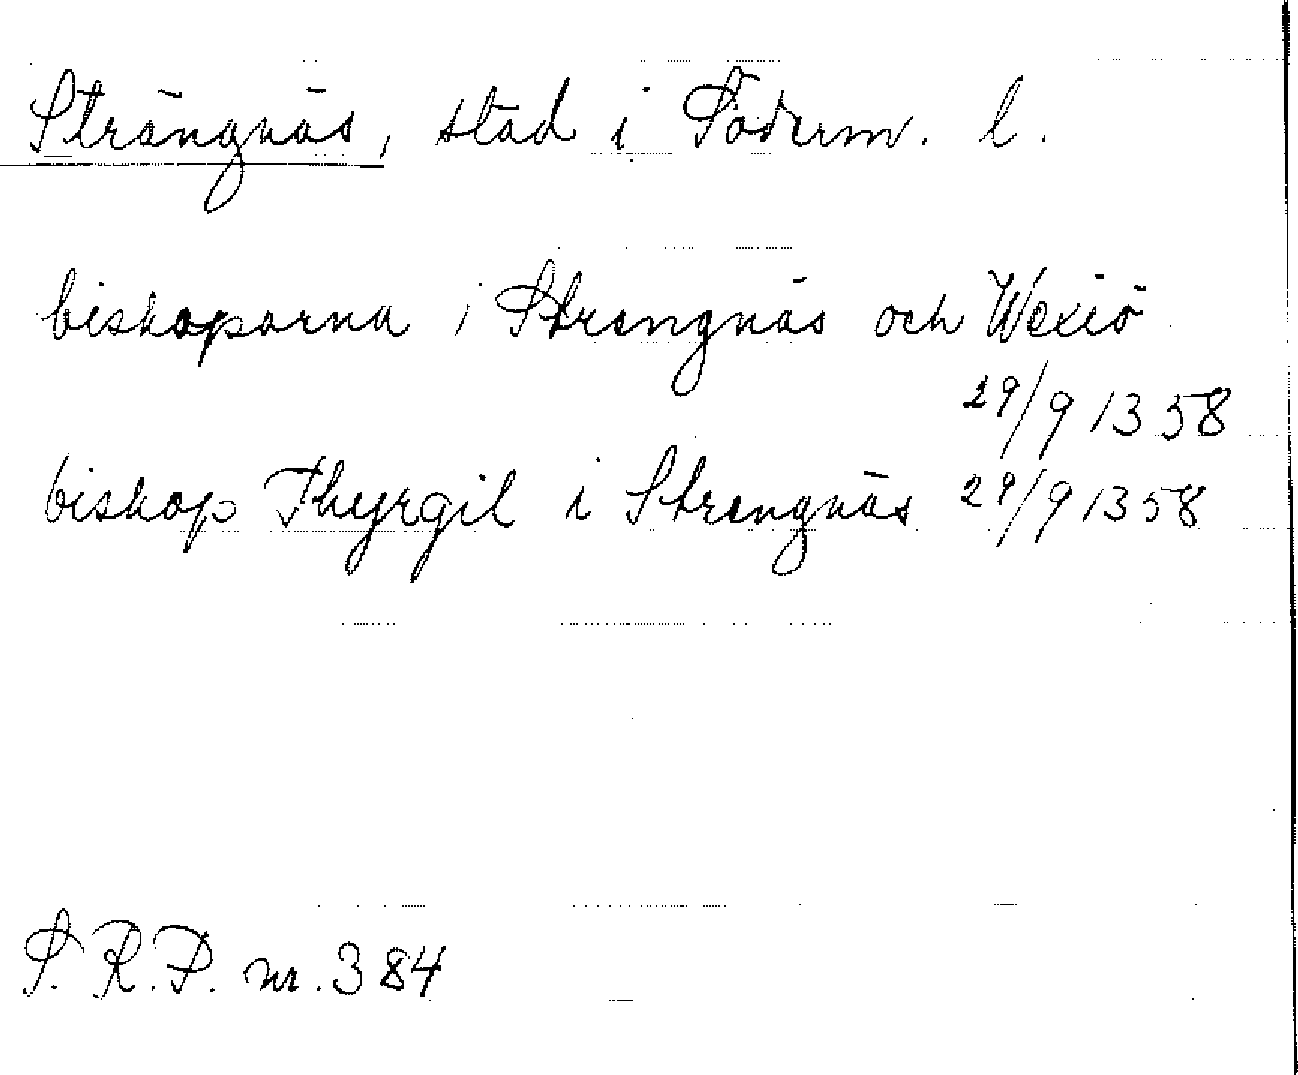 Strängnäs, stad i Söderm. l.
biskoparna i Strengnäs och Wexiö
29/9 1358
biskop Thyrgil i Strengnäs 29/9 1358
S. R. P. nr. 384